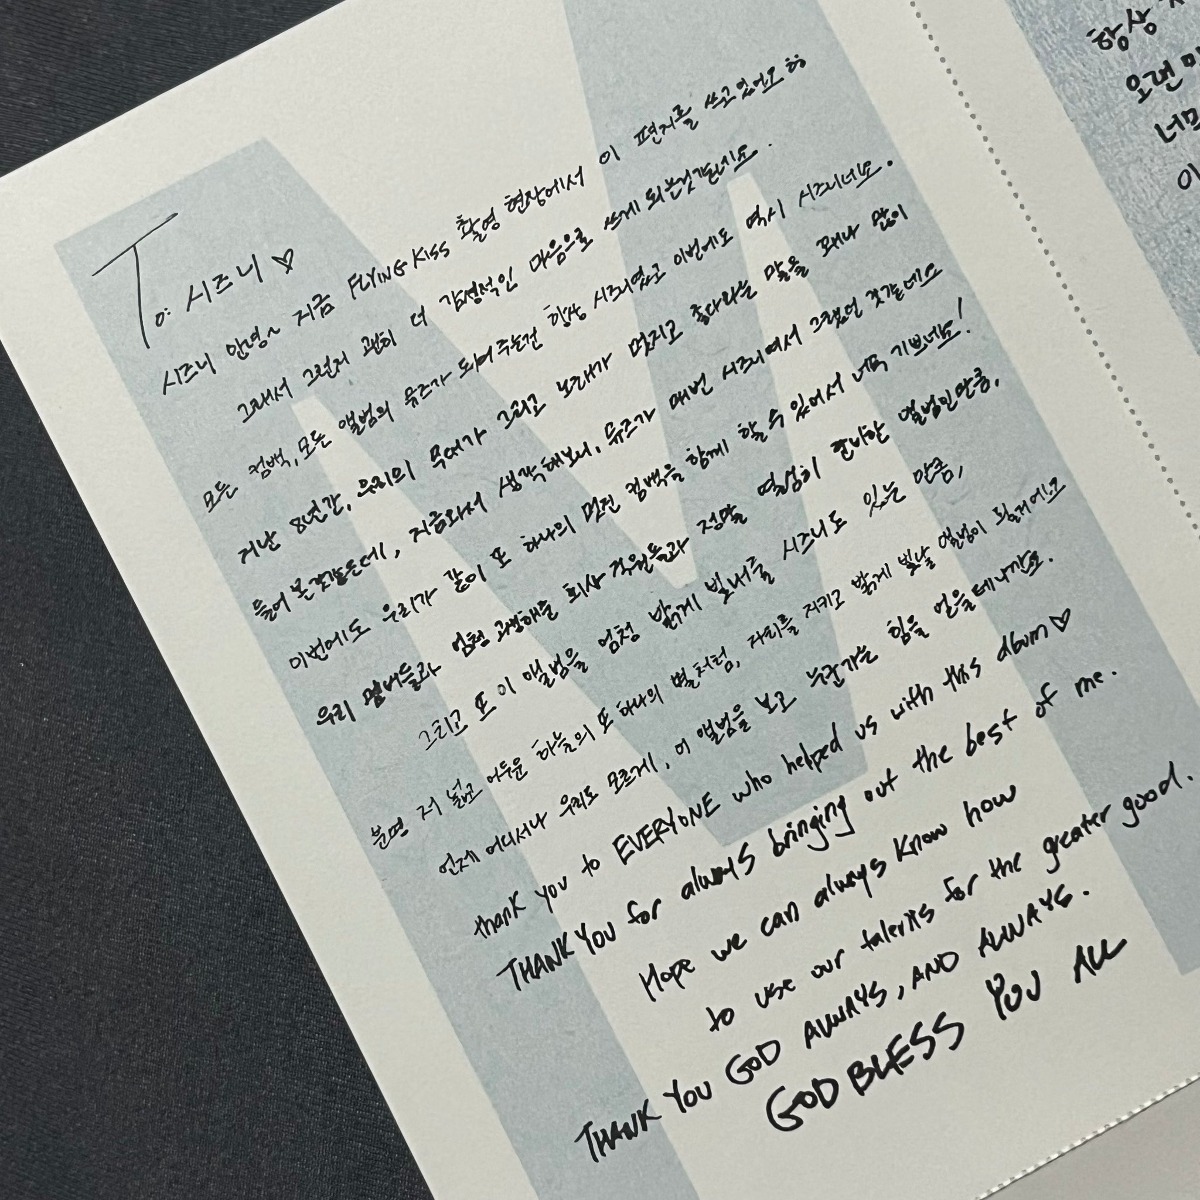 To: 시즈니 ♡
시즈니 안녕~ 지금 FLYING KISS 촬영 현장에서 이 편지를 쓰고 있어요 하하
그래서 그런지 괜히 더 감성적인 마음으로 쓰게 되는 것 같네요.
모든 컴백, 모든 앨범의 뮤즈가 되어 주는건 항상 시즈니였고 이번에도 역시 시즈니네요.
지난 8년간, 우리의 무대가 그리고 노래가 멋지고 좋다라는 말을 꽤나 많이
들어 본 것 같은데, 지금와서 생각해보니, 뮤즈가 매번 시즈니여서 그랬던 것 같네요
이번에도 우리가 같이 또 하나의 멋진 컴백을 함께 할 수 있어서 너무 기쁘네요!
우리 멤버들과 엄청 고생해준 회사 직원들과 정말 열심히 준비한 앨범인만큼,
그리고 또 이 앨범을 엄청 밝게 빛내줄 시즈니도 있는 만큼,
분명 저 넓고 어두운 하늘의 또 하나의 별처럼, 자리를 지키고 밝게 빛날 앨범이 될거에요
언제 어디서나 우리도 모르게, 이 앨범을 보고 누군가는 힘을 얻을테니까요.
thank you to EVERYONE who helped us with this album ♡
THANK YOU for always bringing out the best of me.
Hope we can always know how
to use our talents for the greater good.
THANK YOU GOD ALWAYS, AND ALWAYS.
GOD BLESS YOU ALL
항상
오랜
너무
이